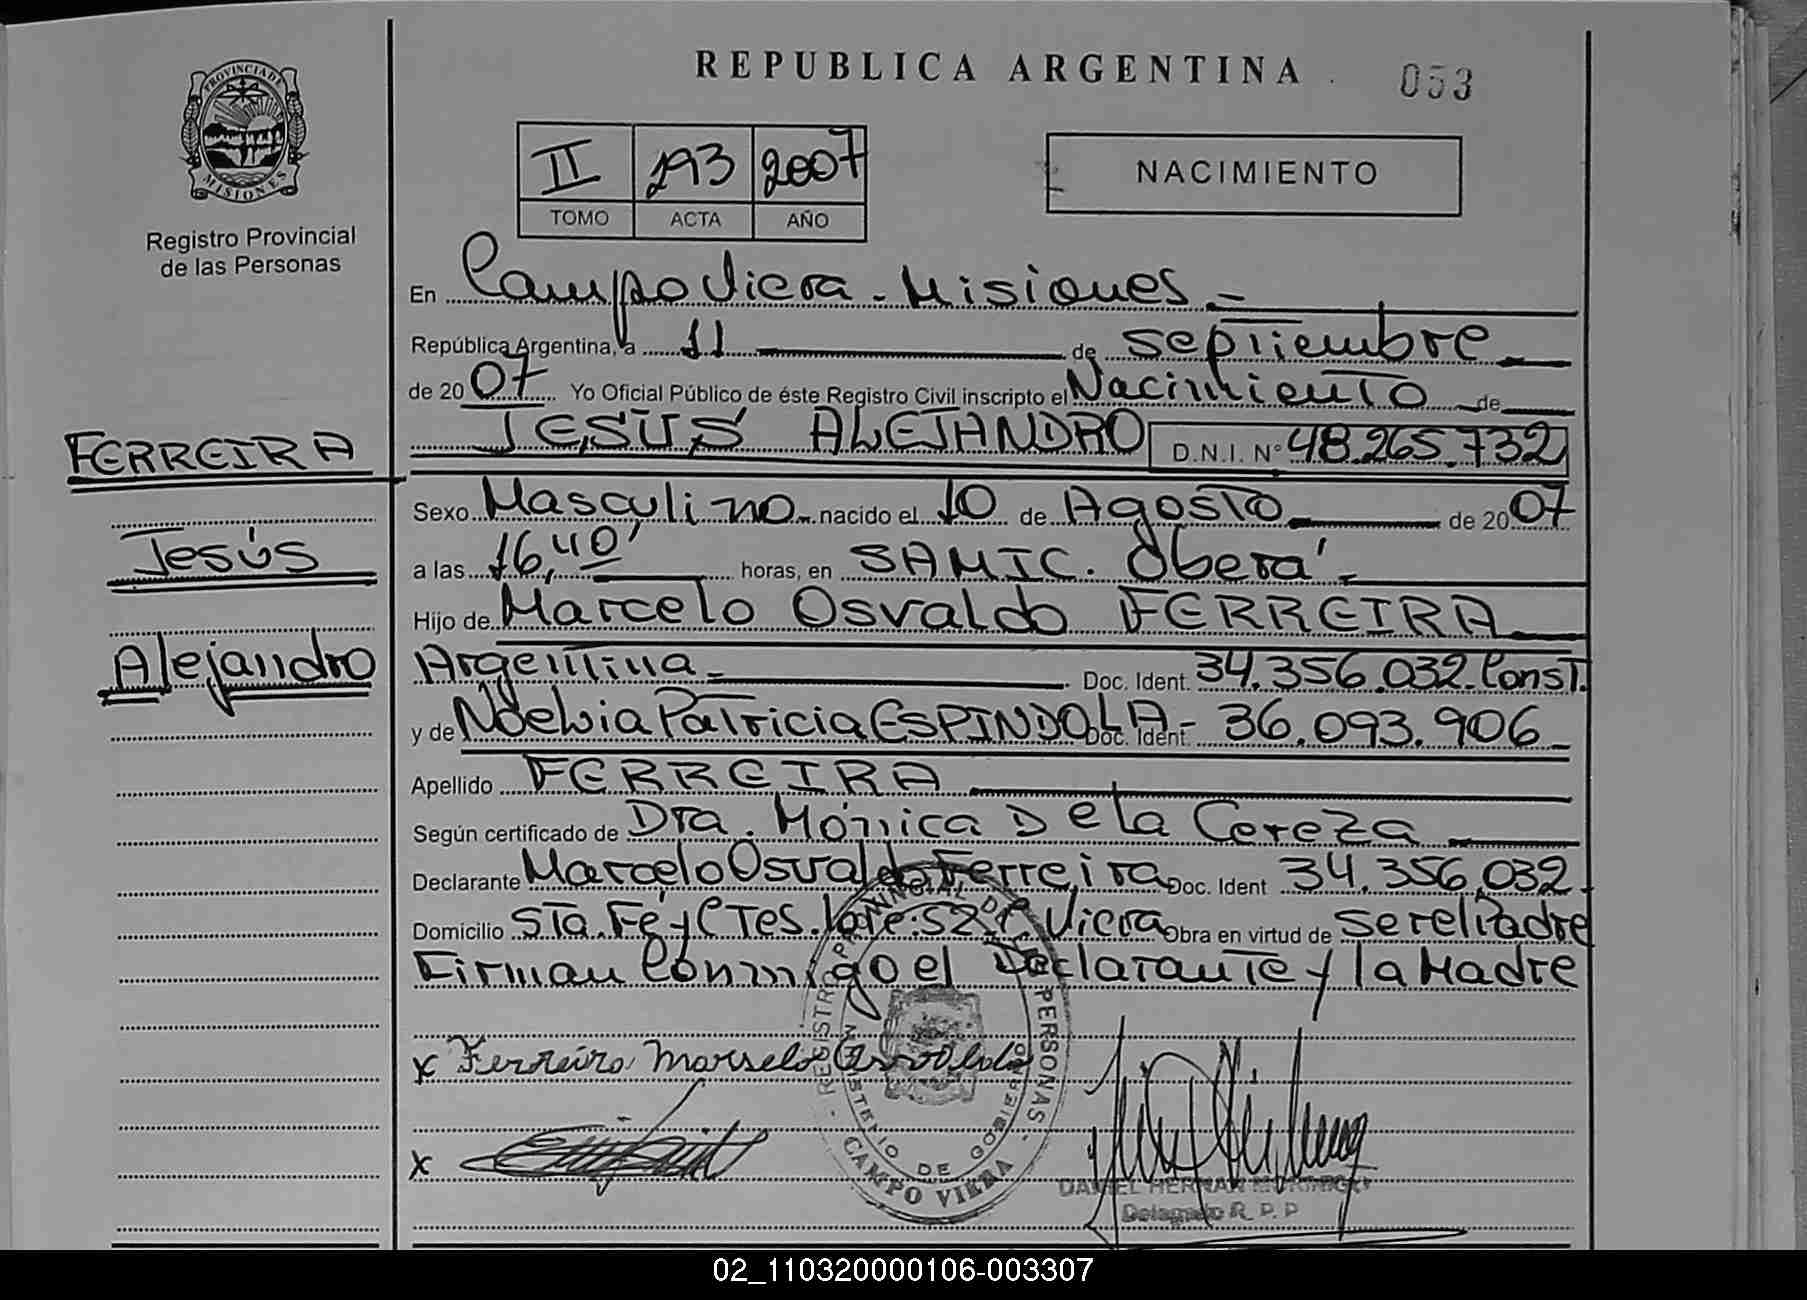 REPUBLICA ARGENTINA
053
PROVINCIA DE MISIONES
Registro Provincial
de las Personas
II 293 2007
TOMO ACTA AÑO
NACIMIENTO
En Campo Viera - Misiones -
República Argentina, a 11 de septiembre
de 2007 Yo Oficial Público de éste Registro Civil inscripto el Nacimiento de
JESÚS ALEJANDRO D.N.I. Nº 48.265.732
FERREIRA
Jesús
Alejandro
Sexo Masculino nacido el 10 de Agosto de 2007
a las 16,40' horas, en SAMIC. Oberá -
Hijo de Marcelo Osvaldo FERREIRA
Argentina - Doc. Ident. 34.356.032. Const.
y de Noelvia Patricia ESPINDOLA - Doc. Ident. 36.093.906
Apellido FERREIRA
Según certificado de Dra. Mónica De la Cereza
Declarante Marcelo Osvaldo Ferreira Doc. Ident 34.356.032.
Domicilio Sta. Fé y CTes. Lote: 52 C. Viera Obra en virtud de ser el Padre
Firman Conmigo el Declarante y la Madre
x Ferreira Marselo
x
REGISTRO PROVINCIAL DE LAS PERSONAS
MINISTERIO DE GOBIERNO
CAMPO VIERA
DANIEL HERNAN
Delegado R. P. P
02_110320000106-003307